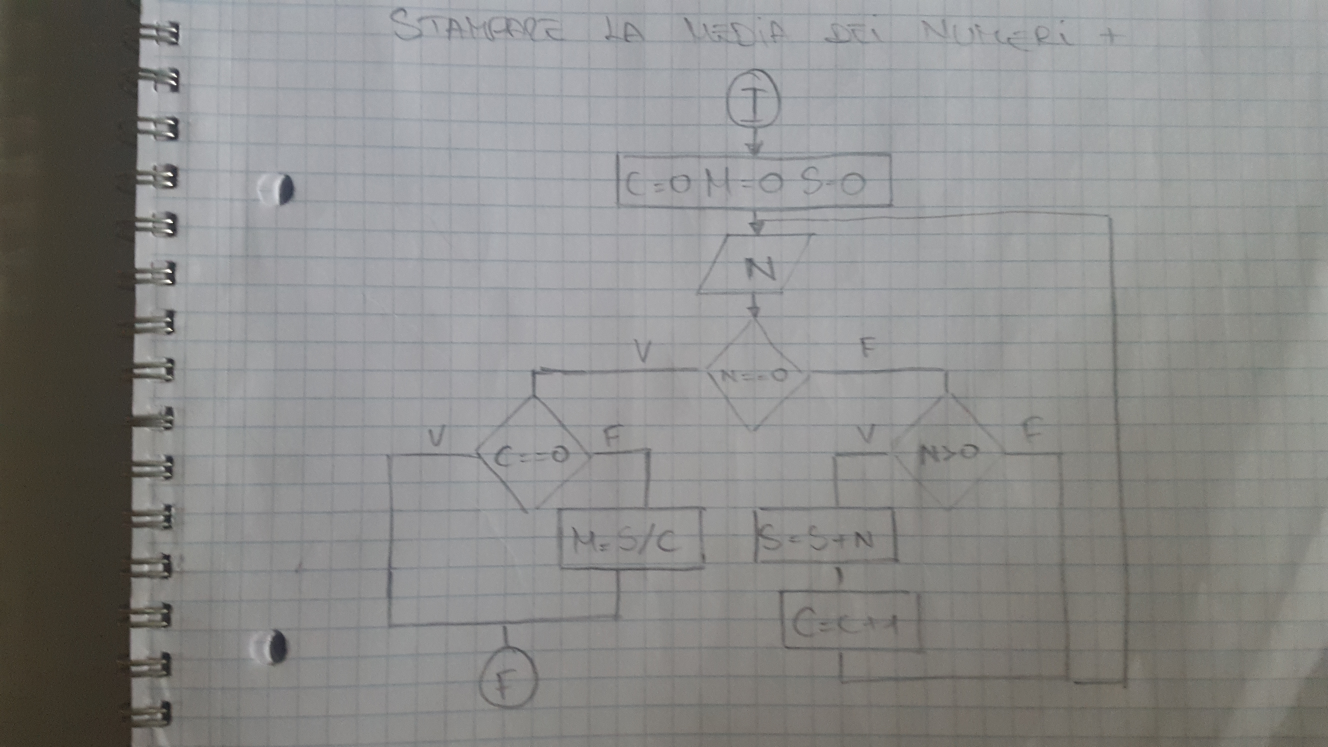 STAMPARE LA MEDIA DEI NUMERI +
I
C=0 M=0 S=0
N
V F
N==0
V F V F
C==0 N>0
M=S/C S=S+N
C=C+1
F